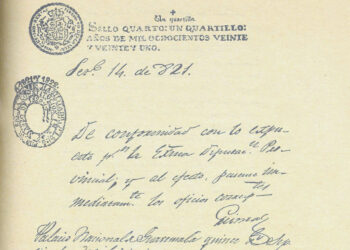 Un quartillo.
SELLO QUARTO: UN QUARTILLO:
AÑOS DE MIL OCHOCIENTOS VEINTE
Y VEINTE Y UNO.
14. de 821.
De conformidad con lo expu-
esto pr. la Exma Diputacn. Pro-
vincial, y al efecto, pasense in-
mediatamte. los oficios
Palacio Nacional de Guatemala quince